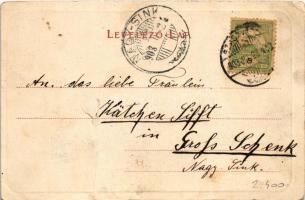 LEVELEZŐ-LAP
NAGY-SINK
903
An das liebe Fräulein
Kätchen Sifft
in
Gross Schenk
Nagy Sink.
2400